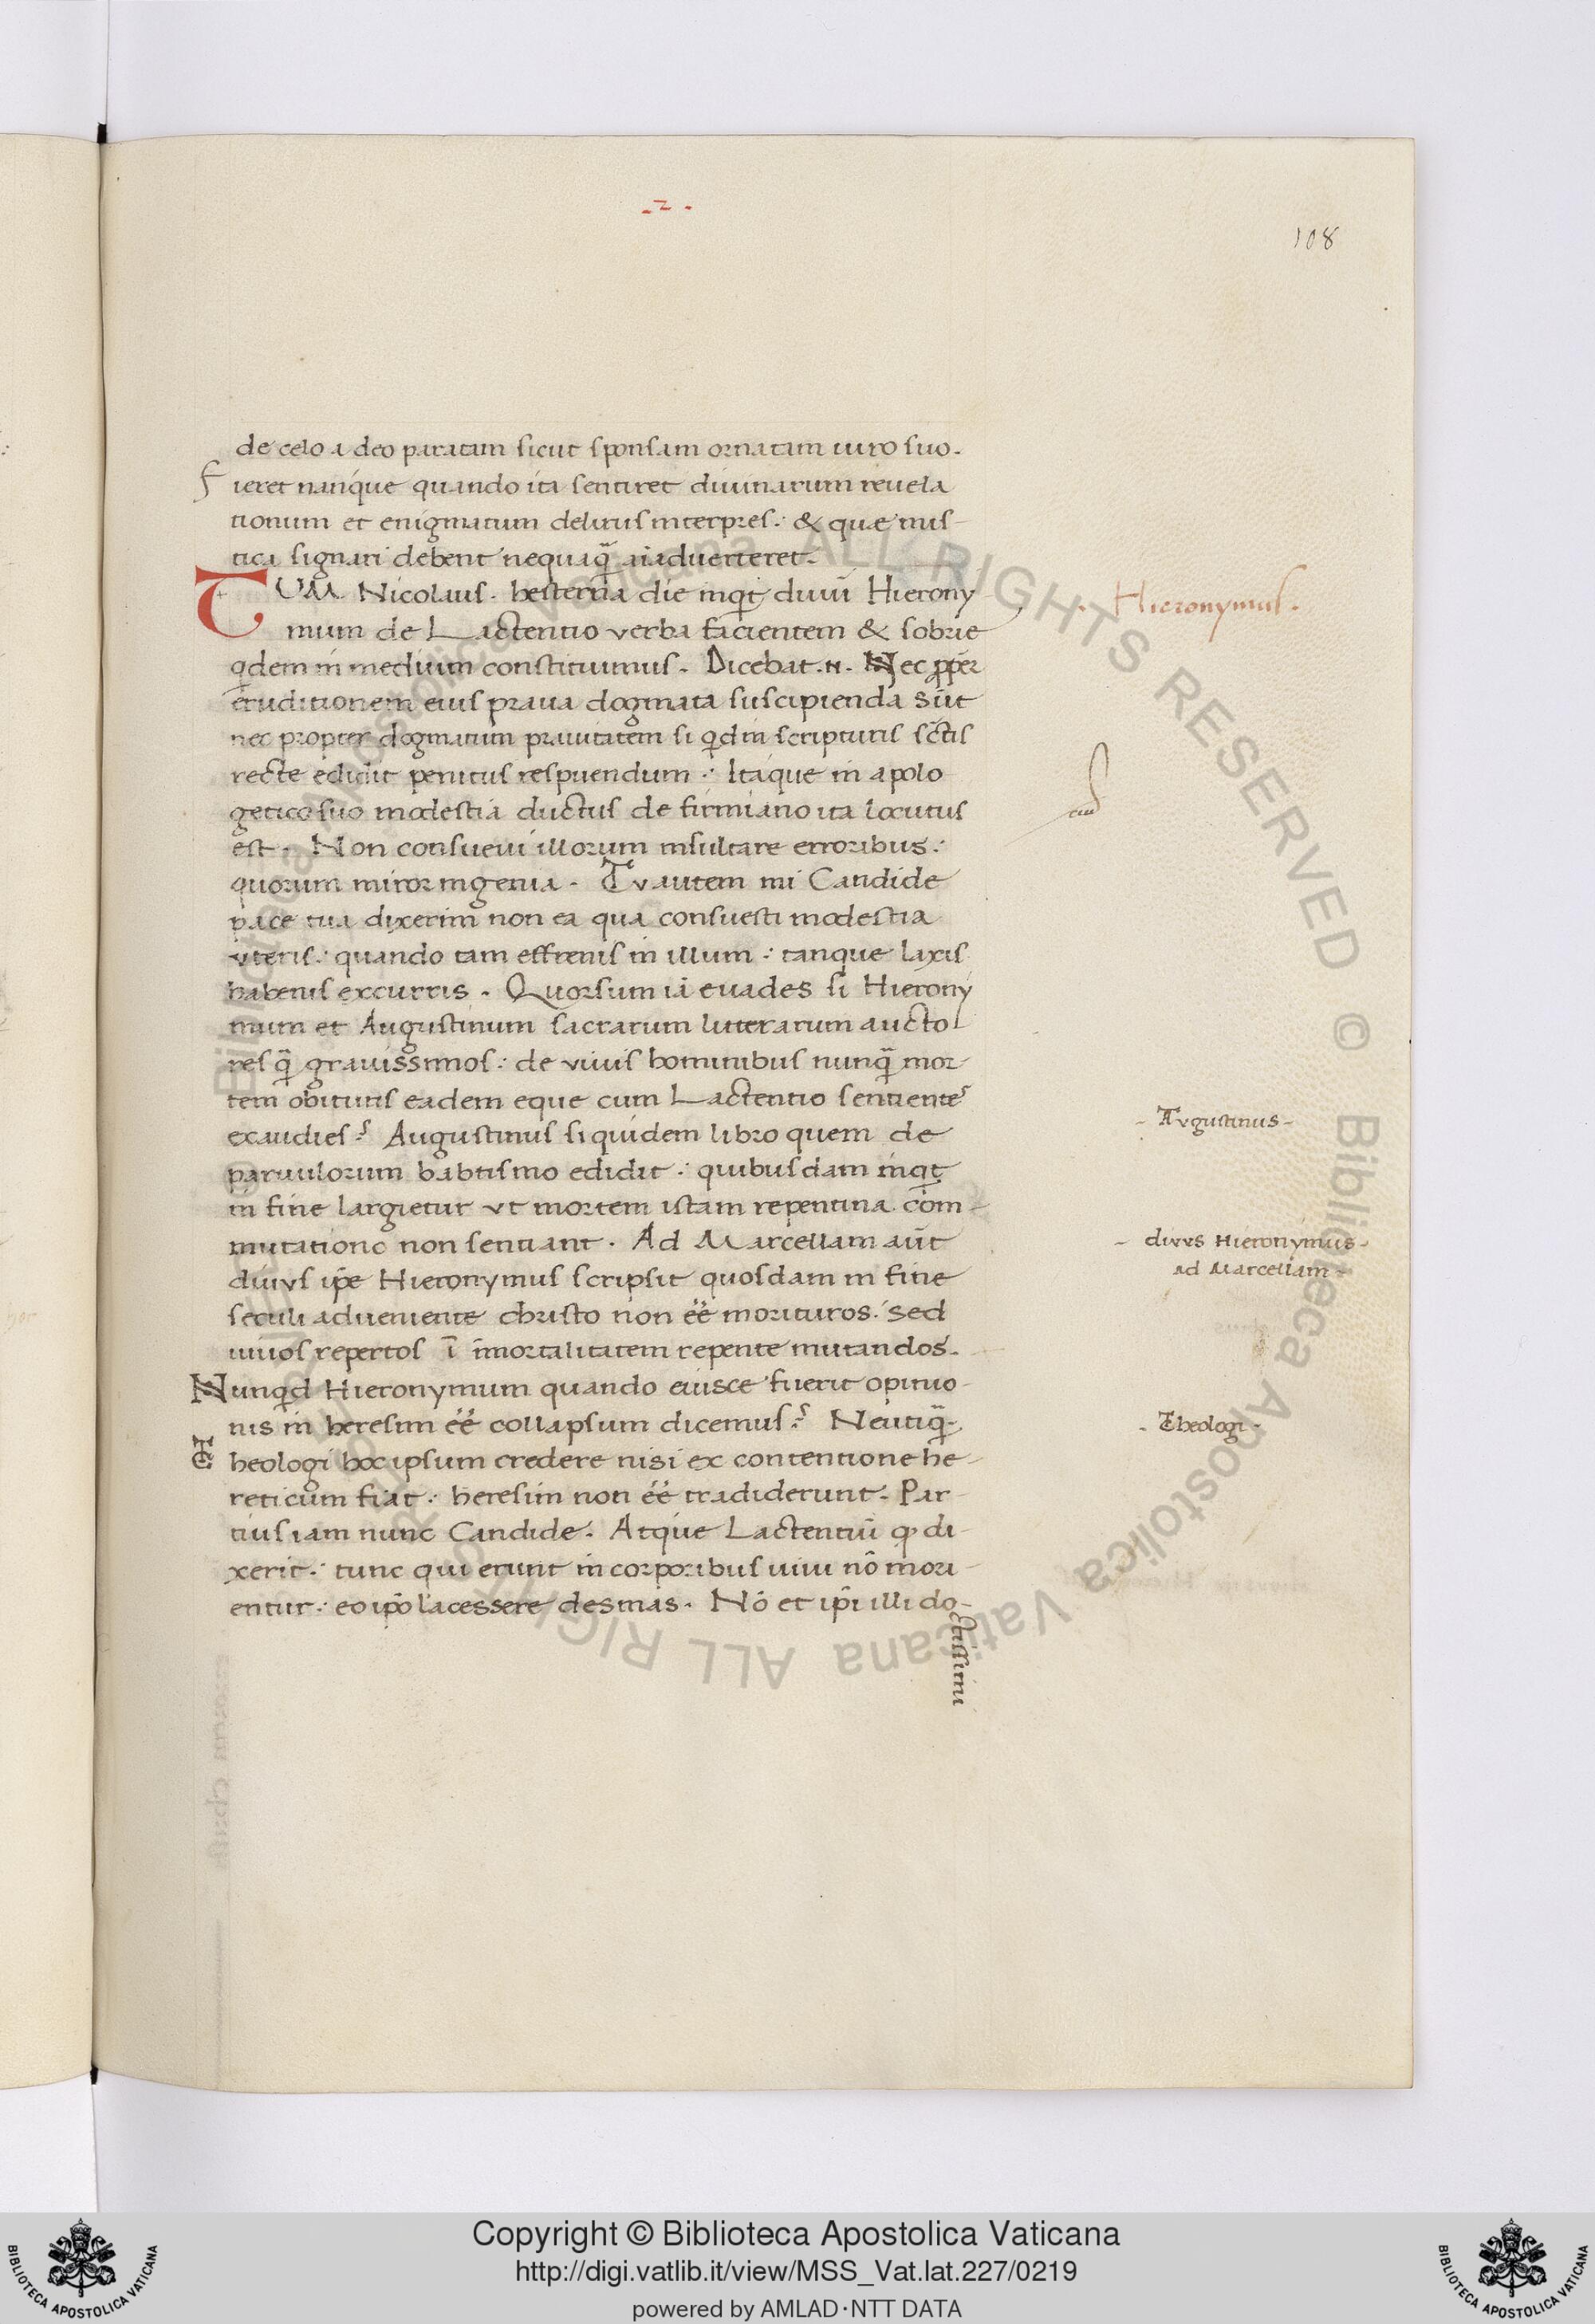 - 2 -
108
de celo a deo paratam sicut sponsam ornatam uiro suo.
Fieret nanque quando ita sentiret diuinarum reuela
tionum et enigmatum delirus interpres : & quae mis-
tica signari debent nequaq̃ aiaduerteret.
TVM Nicolaus. hesterna die inqt diuũ Hierony
mum de Lactentio verba facientem & sobrie
qdem in medium constituimus. Dicebat .n. Nec ꝓpter
eruditionem eius praua dogmata suscipienda sũt
nec propter dogmatum prauitatem si qd in scripturis sctis
recte edidit penitus respuendum : Itaque in apolo
getico suo modestia ductus de firmiano ita locutus
est. Non consueui illorum insultare erroribus :
quorum miror ingenia. Tv autem mi Candide
pace tua dixerim non ea qua consuesti modestia
vteris : quando tam effrenis in illum : tanque laxis
habenis excurris. Quorsum iã euades si Hierony
mum et Augustinum sacrarum litterarum aucto
res q̃ grauissimos : de viuis hominibus nunq̃ mor-
tem obituris eadem eque cum Lactentio sentientes
exaudies? Augustinus siquidem libro quem de
paruulorum babtismo edidit : quibusdam inqt
in fine largietur vt mortem istam repentina com-
mutatione non sentiant. Ad Marcellam aũt
diuvs ip̃e Hieronymus scripsit quosdam in fine
seculi adueniente christo non ẽẽ morituros : sed
uiuos repertos ĩ immortalitatem repente mutandos.
Nunqd Hieronymum quando eiusce fuerit opinio-
nis in heresim ẽẽ collapsum dicemus? Neutiq̃.
Theologi hoc ipsum credere nisi ex contentione he-
reticum fiat : heresim non ẽẽ tradiderunt. Par-
tius iam nunc Candide. Atque Lactentiũ ꝙ di-
xerit : tunc qui erunt in corporibus uiui nõ mori-
entur : eo ip̃o lacessere desinas. Nõ et ip̃i illi do-
ctissimi
. Hieronymus .
- Avgustinus -
- divvs Hieronymus -
ad Marcellam -
- Theologi -
Copyright © Biblioteca Apostolica Vaticana
http://digi.vatlib.it/view/MSS_Vat.lat.227/0219
powered by AMLAD·NTT DATA
BIBLIOTECA APOSTOLICA VATICANA
BIBLIOTECA APOSTOLICA VATICANA
Biblioteca Apostolica Vaticana ALL RIGHTS RESERVED © Biblioteca Apostolica Vaticana ALL RIGHTS RESERVED ©